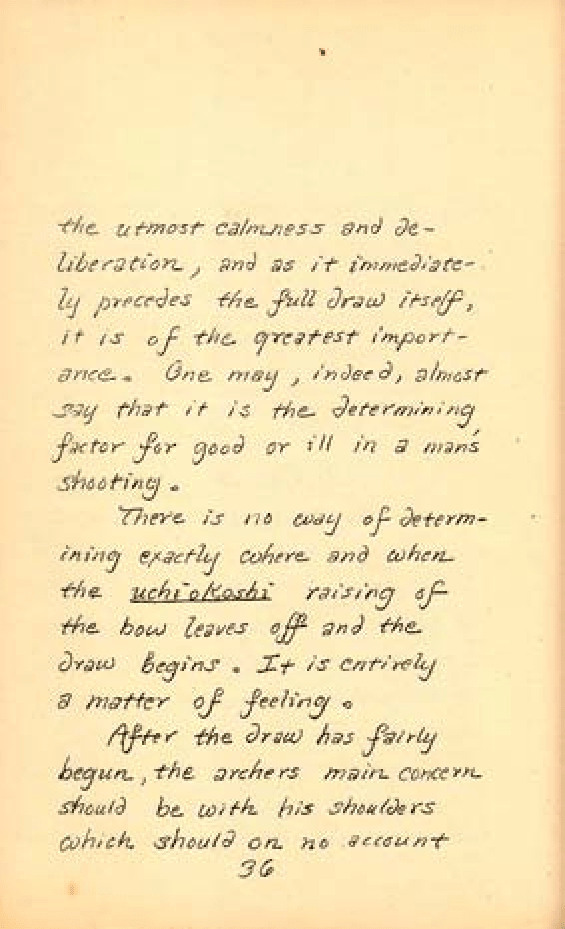 the utmost calmness and de-
liberation, and as it immediate-
ly precedes the full draw itself,
it is of the greatest import-
ance. One may, indeed, almost
say that it is the determining
factor for good or ill in a man's
shooting.
There is no way of determ-
ining exactly where and when
the uchiokoshi raising of
the bow leaves off and the
draw begins. It is entirely
a matter of feeling.
After the draw has fairly
begun, the archers main concern
should be with his shoulders
which should on no account
36